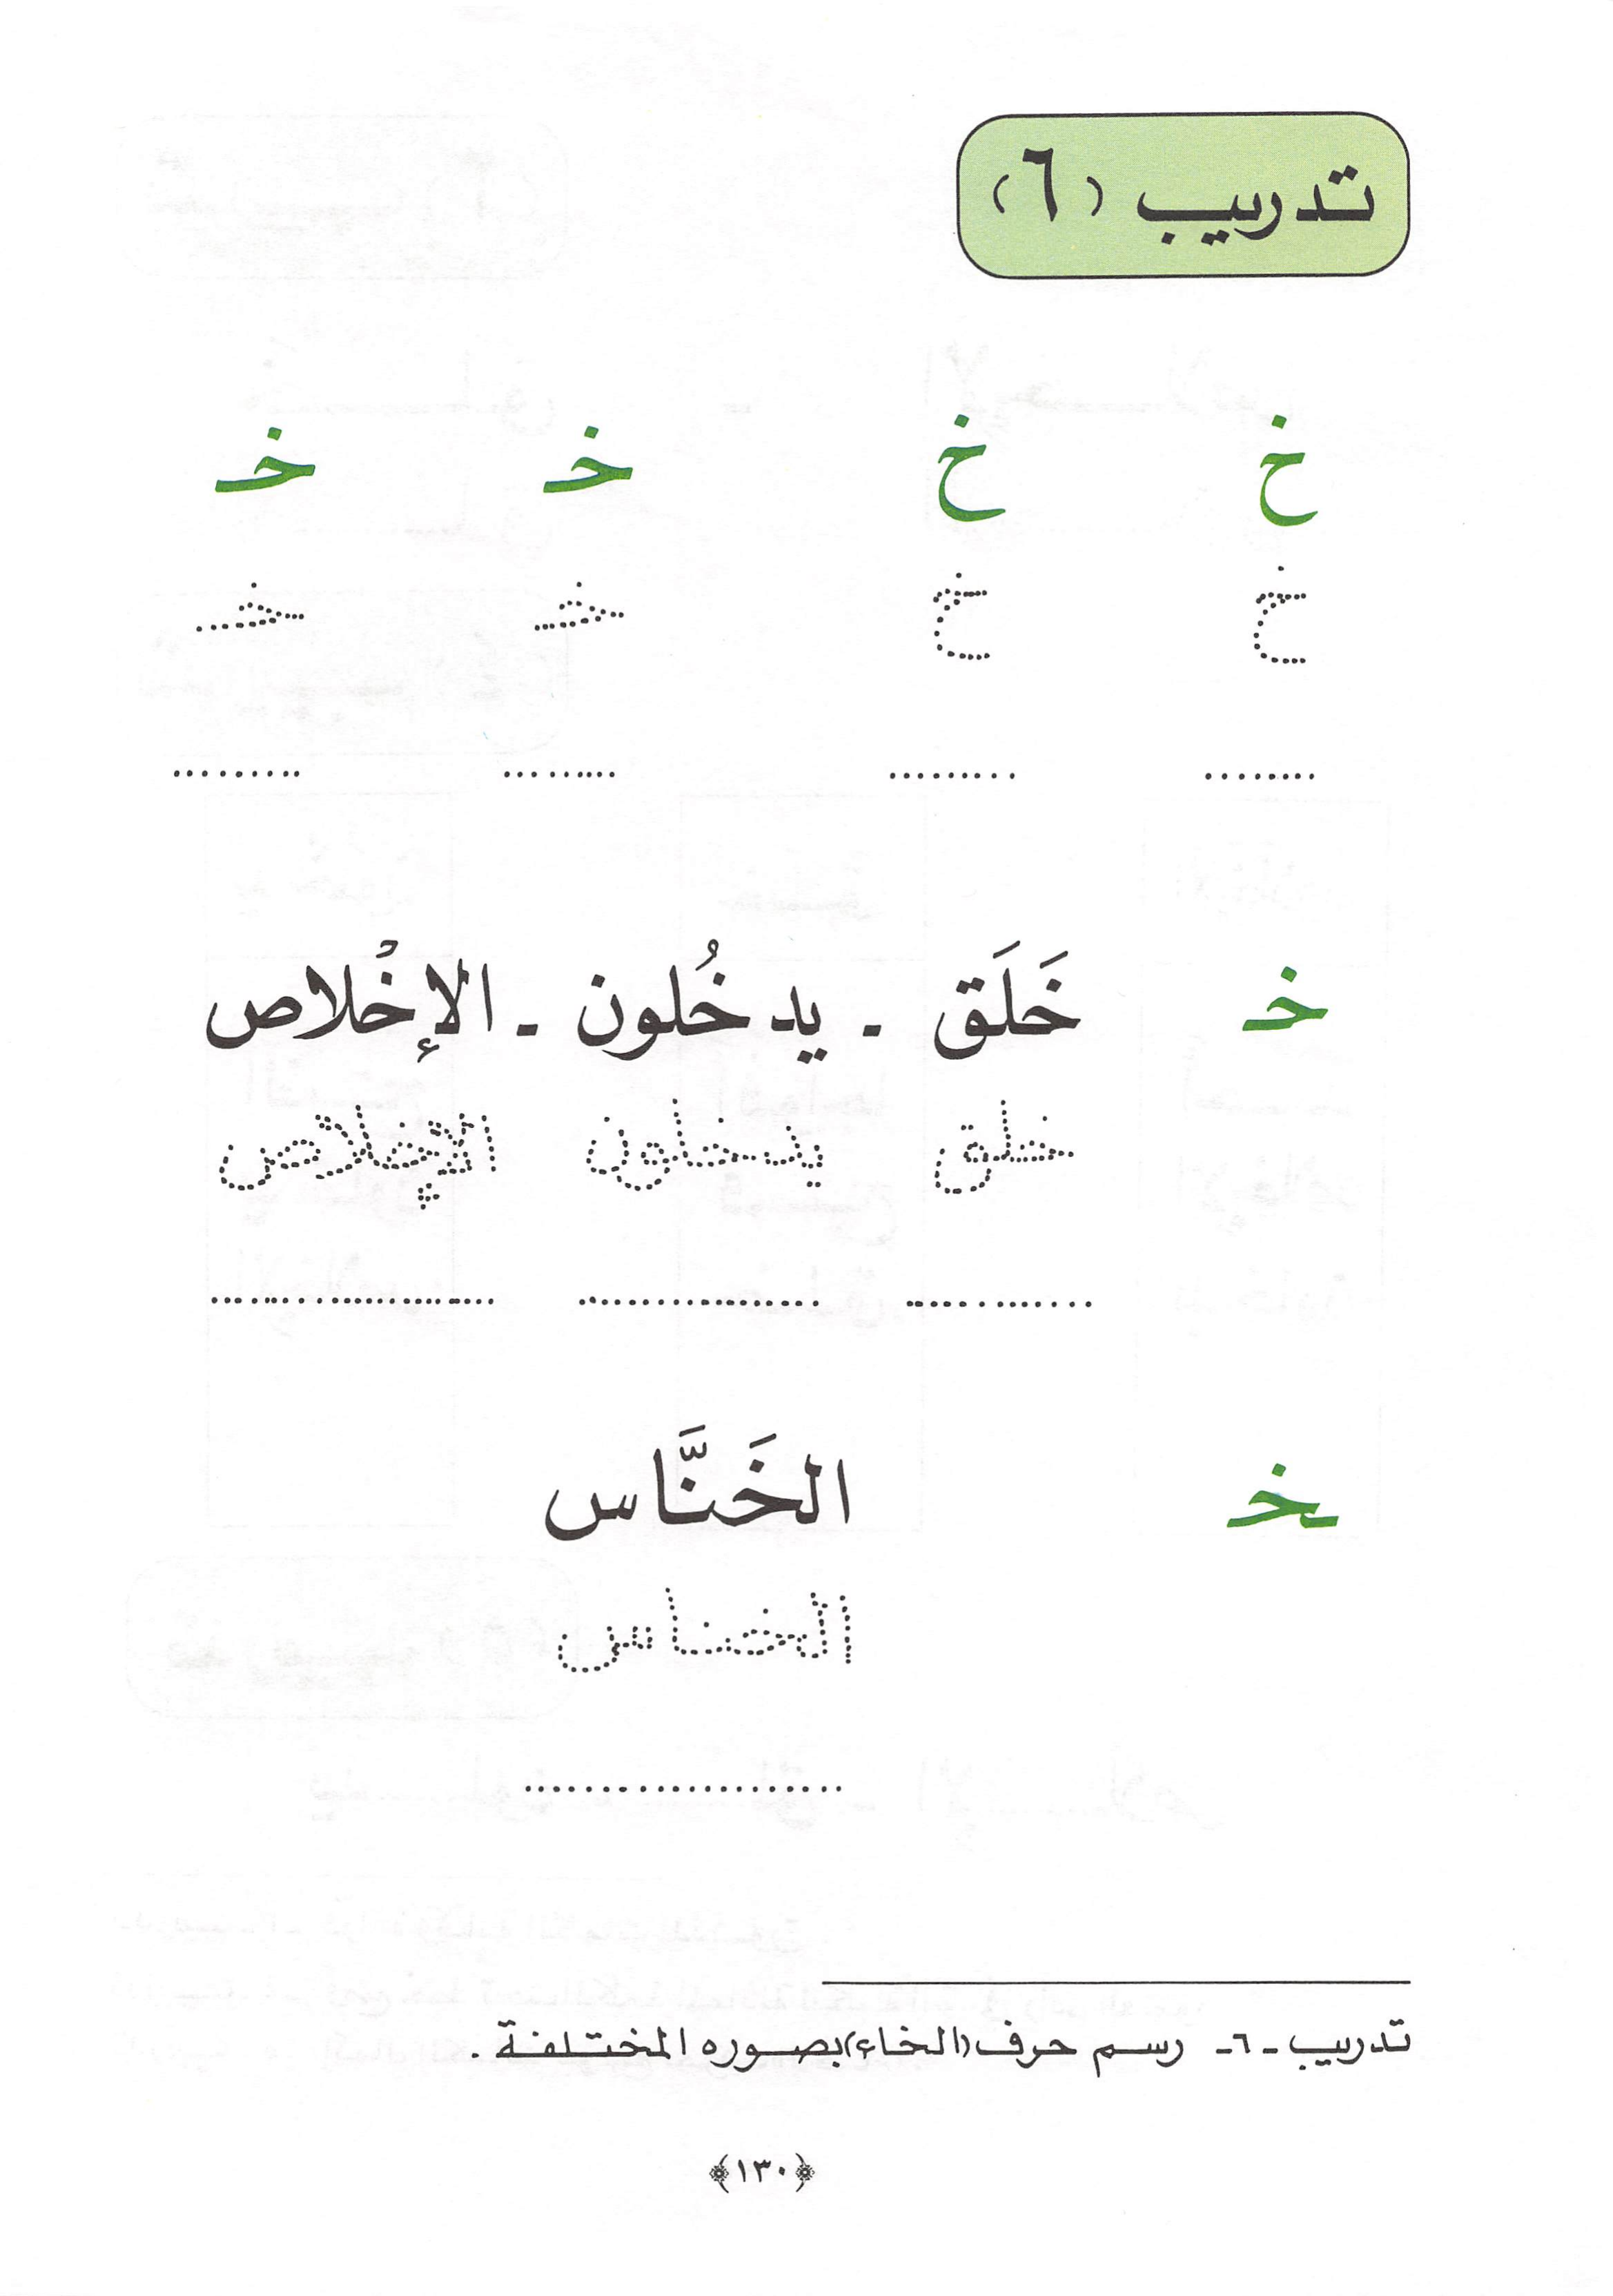 تدريب (٦)
خ خ خـ خـ
خ خ خـ خـ
خـ خَلَق - يدخُلون - الإخْلاص
خلق يدخلون الإخلاص
ـخـ الخَنَّاس
الخناس
تدريب -٦- رسم حرف (الخاء) بصوره المختلفة .
﴿١٣٠﴾